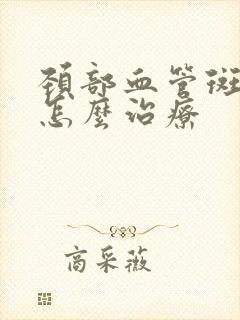 頸部血管斑
怎麼治療
商采薇